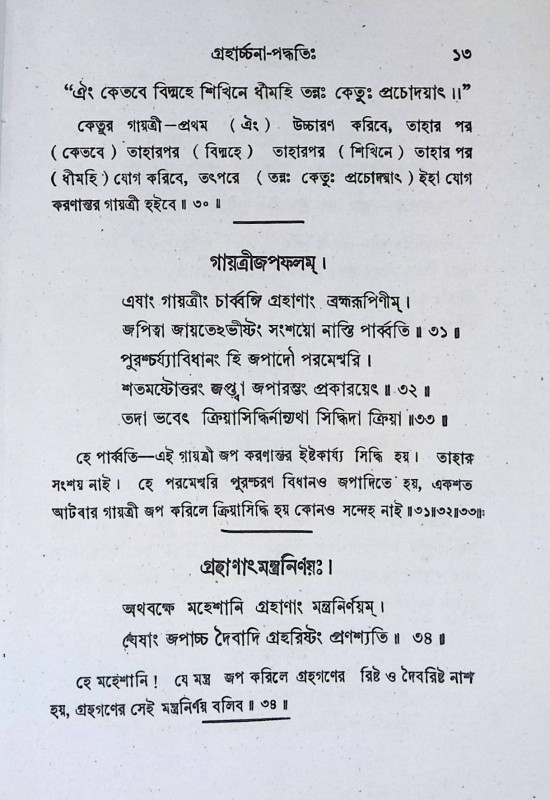 গ্রহার্চ্চনা-পদ্ধতিঃ ১৩
“ঐং কেতবে বিদ্মহে শিখিনে ধীমহি তন্নঃ কেতুঃ প্রচোদয়াৎ ॥”
কেতুর গায়ত্রী—প্রথম ( ঐং ) উচ্চারণ করিবে, তাহার পর
( কেতবে ) তাহারপর ( বিদ্মহে ) তাহারপর ( শিখিনে ) তাহার পর
( ধীমহি ) যোগ করিবে, তৎপরে ( তন্নঃ কেতুঃ প্রচোদয়াৎ ) ইহা যোগ
করণান্তর গায়ত্রী হইবে ॥ ৩০ ॥
গায়ত্রীজপফলম্ ।
এষাং গায়ত্রীং চার্ব্বঙ্গি গ্রহাণাং ব্রহ্মরূপিণীম্ ।
জপিত্বা জায়তেঽভীষ্টং সংশয়ো নাস্তি পার্ব্বতি ॥ ৩১ ॥
পুরশ্চর্য্যাবিধানং হি জপাদৌ পরমেশ্বরি ।
শতমষ্টোত্তরং জপ্ত্বা জপারম্ভং প্রকারয়েৎ ॥ ৩২ ॥
তদা ভবেৎ ক্রিয়াসিদ্ধির্নান্যথা সিদ্ধিদা ক্রিয়া ॥৩৩ ॥
হে পার্ব্বতি—এই গায়ত্রী জপ করণান্তর ইষ্টকার্য্য সিদ্ধি হয় । তাহার
সংশয় নাই । হে পরমেশ্বরি পুরশ্চরণ বিধানও জপাদিতে হয়, একশত
আটবার গায়ত্রী জপ করিলে ক্রিয়াসিদ্ধি হয় কোনও সন্দেহ নাই ॥৩১॥৩২॥৩৩॥
গ্রহাণাংমন্ত্রনির্ণয়ঃ ।
অথবক্ষে মহেশানি গ্রহাণাং মন্ত্রনির্ণয়ম্ ।
যেষাং জপাচ্চ দৈবাদি গ্রহরিষ্টং প্রণশ্যতি ॥ ৩৪ ॥
হে মহেশানি ! যে মন্ত্র জপ করিলে গ্রহগণের রিষ্ট ও দৈবরিষ্ট নাশ
হয়, গ্রহগণের সেই মন্ত্রনির্ণয় বলিব ॥ ৩৪ ॥